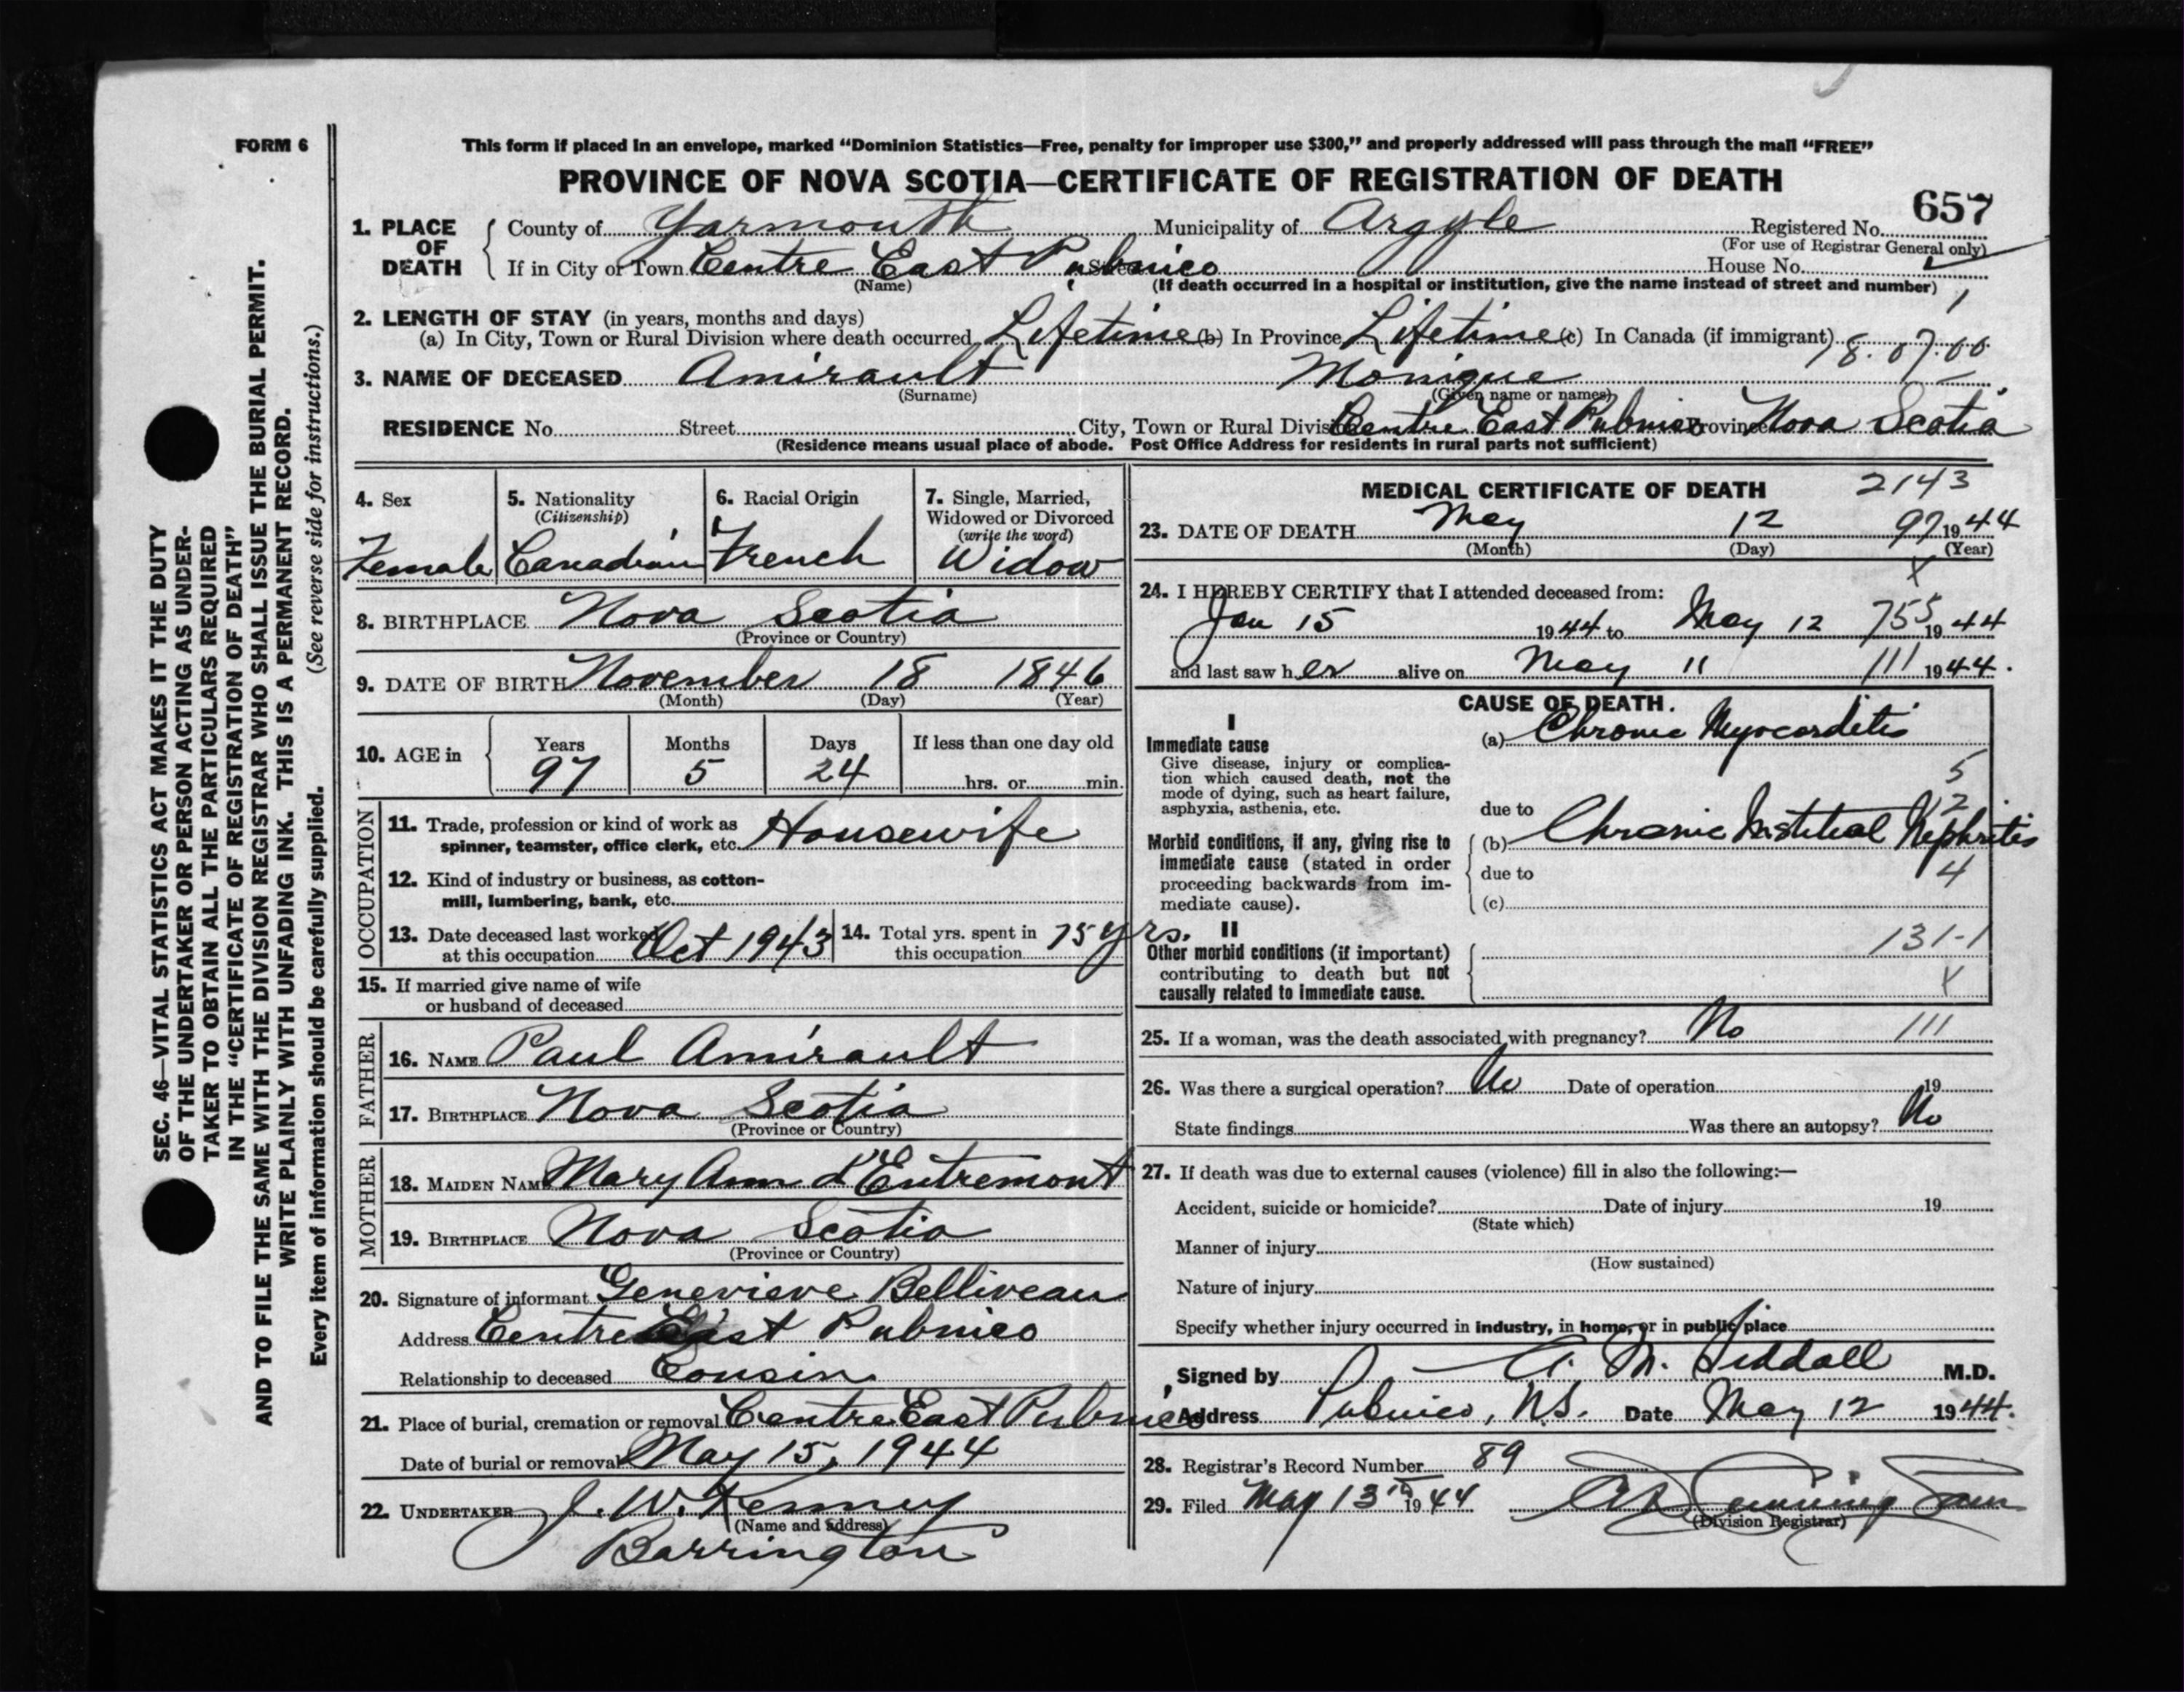 FORM 6
This form if placed in an envelope, marked "Dominion Statistics—Free, penalty for improper use $300," and properly addressed will pass through the mail "FREE"
PROVINCE OF NOVA SCOTIA—CERTIFICATE OF REGISTRATION OF DEATH
657
1. PLACE OF DEATH County of Yarmouth Municipality of Argyle Registered No.
(For use of Registrar General only)
If in City or Town Centre East Pubnico Street House No.
(Name) (If death occurred in a hospital or institution, give the name instead of street and number)
2. LENGTH OF STAY (in years, months and days)
(a) In City, Town or Rural Division where death occurred Lifetime (b) In Province Lifetime (c) In Canada (if immigrant)
18.07.00
3. NAME OF DECEASED Amirault Monique
(Surname) (Given name or names)
RESIDENCE No. Street City, Town or Rural Division Centre East Pubnico Province Nova Scotia
(Residence means usual place of abode. Post Office Address for residents in rural parts not sufficient)
4. Sex Female
5. Nationality (Citizenship) Canadian
6. Racial Origin French
7. Single, Married, Widowed or Divorced (write the word) Widow
8. BIRTHPLACE Nova Scotia
(Province or Country)
9. DATE OF BIRTH November 18 1846
(Month) (Day) (Year)
10. AGE in Years 97 Months 5 Days 24 If less than one day old hrs. or min.
OCCUPATION
11. Trade, profession or kind of work as spinner, teamster, office clerk, etc. Housewife
12. Kind of industry or business, as cotton-mill, lumbering, bank, etc.
13. Date deceased last worked at this occupation Oct 1943
14. Total yrs. spent in this occupation 75 yrs.
15. If married give name of wife or husband of deceased
FATHER
16. NAME Paul Amirault
17. BIRTHPLACE Nova Scotia
(Province or Country)
MOTHER
18. MAIDEN NAME Mary Ann d'Entremont
19. BIRTHPLACE Nova Scotia
(Province or Country)
20. Signature of informant Genevieve Belliveau
Address Centre East Pubnico
Relationship to deceased Cousin
21. Place of burial, cremation or removal Centre East Pubnico
Date of burial or removal May 15, 1944
22. UNDERTAKER J. W. Kenney
(Name and address)
Barrington
MEDICAL CERTIFICATE OF DEATH 2143
23. DATE OF DEATH May 12 97 1944
(Month) (Day) (Year)
24. I HEREBY CERTIFY that I attended deceased from:
Jan 15 1944 to May 12 755 1944
and last saw her alive on May 11 111 1944.
CAUSE OF DEATH.
I
Immediate cause
Give disease, injury or complication which caused death, not the mode of dying, such as heart failure, asphyxia, asthenia, etc.
(a) Chronic Myocarditis
5
due to 2
Morbid conditions, if any, giving rise to immediate cause (stated in order proceeding backwards from immediate cause).
(b) Chronic Institial Nephritis
due to 4
(c)
II
Other morbid conditions (if important) contributing to death but not causally related to immediate cause.
131-1
25. If a woman, was the death associated with pregnancy? No 111
26. Was there a surgical operation? No Date of operation 19
State findings Was there an autopsy? No
27. If death was due to external causes (violence) fill in also the following:—
Accident, suicide or homicide? Date of injury 19
(State which)
Manner of injury
(How sustained)
Nature of injury
Specify whether injury occurred in industry, in home, or in public place
Signed by A. M. Siddall M.D.
Address Pubnico, N.S. Date May 12 1944.
28. Registrar's Record Number 89
29. Filed May 13th 1944
(Division Registrar)
SEC. 46—VITAL STATISTICS ACT MAKES IT THE DUTY
OF THE UNDERTAKER OR PERSON ACTING AS UNDER-
TAKER TO OBTAIN ALL THE PARTICULARS REQUIRED
IN THE "CERTIFICATE OF REGISTRATION OF DEATH"
AND TO FILE THE SAME WITH THE DIVISION REGISTRAR WHO SHALL ISSUE THE BURIAL PERMIT.
WRITE PLAINLY WITH UNFADING INK. THIS IS A PERMANENT RECORD.
Every item of information should be carefully supplied. (See reverse side for instructions.)